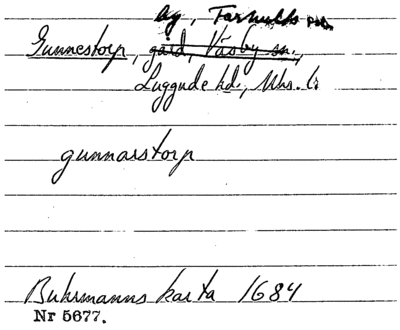 by, Farhults sn.
Gunnestorp, gård, Väsby sn.,
Luggude hd., Mhs. l.
gunnarstorp
Buhrmanns karta 1684
Nr 5677.